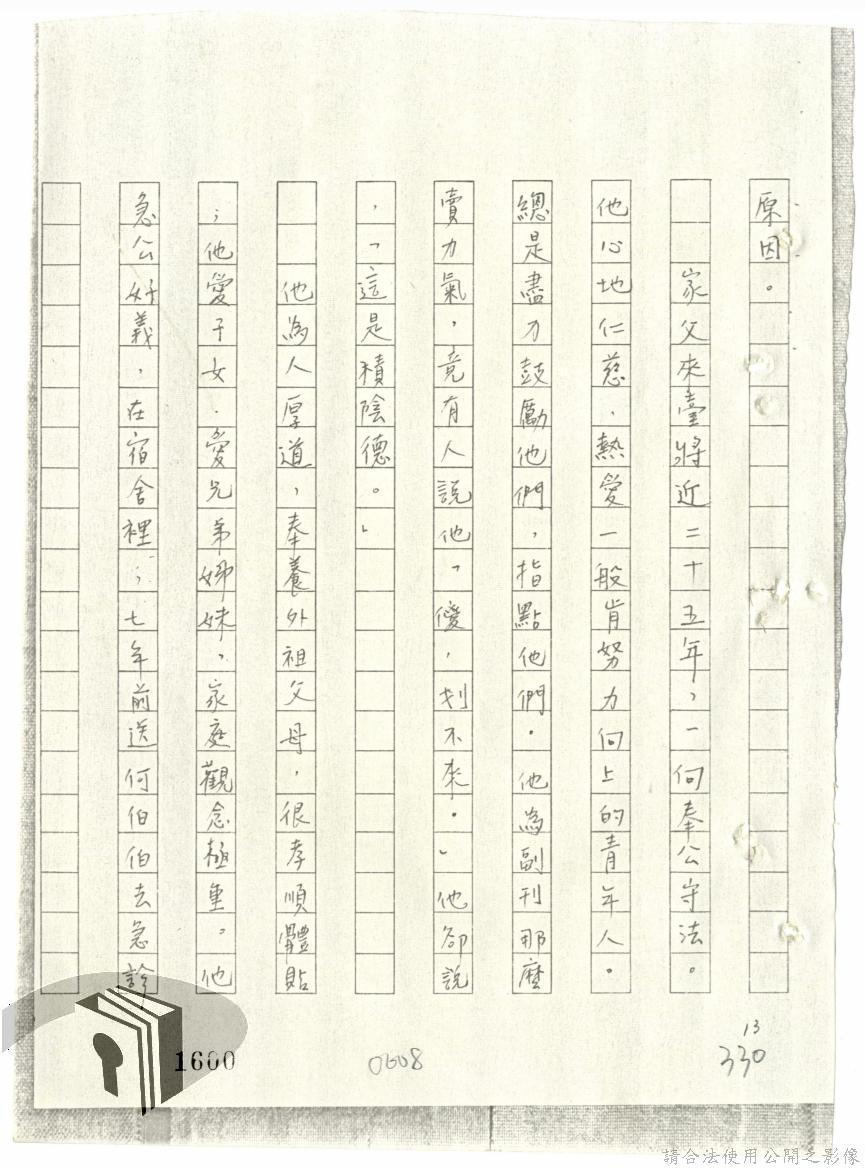 原因。
家父來臺將近二十五年，一向奉公守法。
他心地仁慈，熱愛一般肯努力向上的青年人。
總是盡力鼓勵他們，指點他們。他為副刊那麼
賣力氣，竟有人說他「傻，划不來。」他卻說
，「這是積陰德。」
他為人厚道，奉養外祖父母，很孝順體貼
；他愛子女，愛兄弟姊妹，家庭觀念極重。他
急公好義，在宿舍裡，七年前送何伯伯去急診
13
330
0608
1600
請合法使用公開之影像